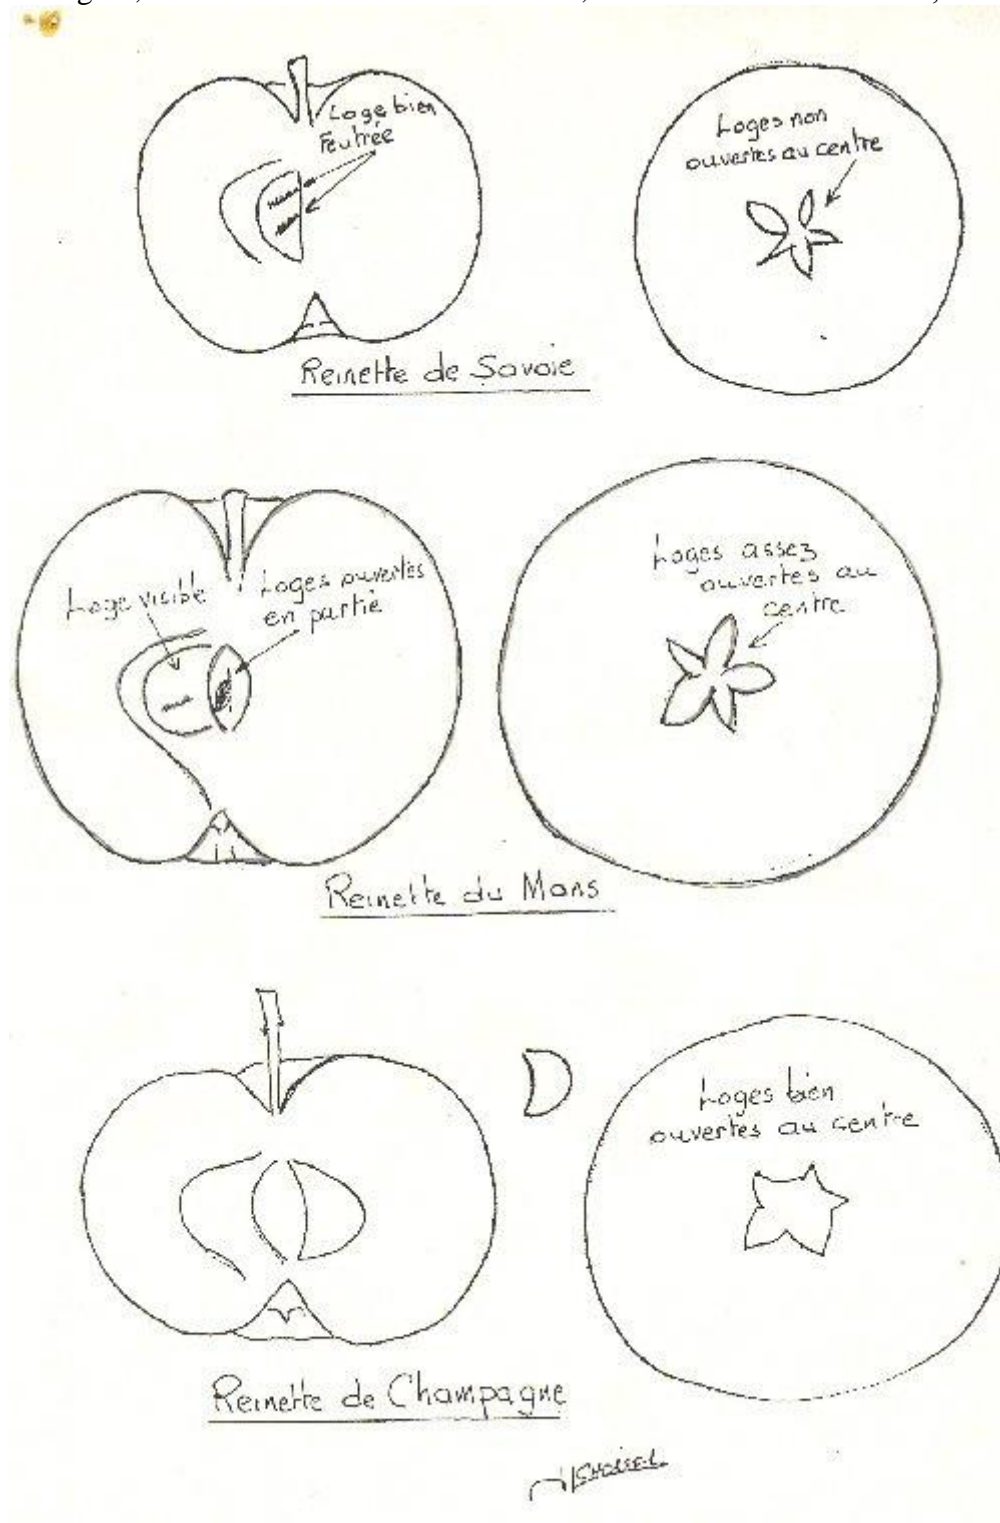 Loge bien
Feutrée
Loges non
ouvertes au centre
Reinette de Savoie
Loge visible
Loges ouvertes
en partie
Loges assez
ouvertes au
centre
Reinette du Mans
Loges bien
ouvertes au centre
Reinette de Champagne